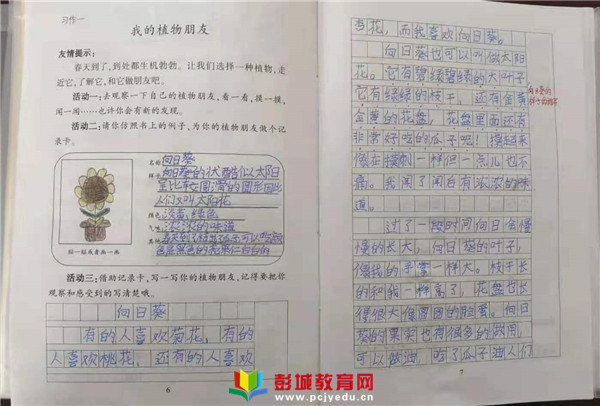 习作一
我的植物朋友
友情提示：
春天到了,到处都生机勃勃。让我们选择一种植物,走
近它,了解它,和它做朋友吧。
活动一:去观察一下自己的植物朋友,看一看,摸一摸,
闻一闻……也许你会有新的发现。
活动二:请你仿照书上的例子,为你的植物朋友做个记
录卡。
名称 向日葵
样子 向日葵的状 似太阳
是比较圆滑的圆形因此
人们又叫太阳花
颜色 淡黄、绿色
气味 浓浓的味道
其他
贴一贴或者画一画
活动三:借助记录卡,写一写你的植物朋友,记得要把你
观察和感受到的写清楚哦。
向日葵
有的人喜欢菊花，有的
人喜欢桃花，还有的人喜欢
6
杏花，而我喜欢向日葵。
向日葵也可以叫做太阳
花。它有碧绿碧绿的大叶子，
它有绿绿的枝子，还有金黄
金黄的花盘，花盘里面还有
非常好吃的瓜子呢！摸起来
像在摸刺一样但一点儿也不
痛。我闻了闻白有浓浓的味
道。
向日葵的
过了一段时间向日会慢
慢的长大，向日葵的叶子，
像我的手掌一样大。枝子长
的和我一样高了，花盘也长
得很大像蛋圆的脸蛋。向日
葵的果实也有很多的做用，
可以做油，吃了瓜子油人们
7
彭城教育网
www.pcjyedu.cn